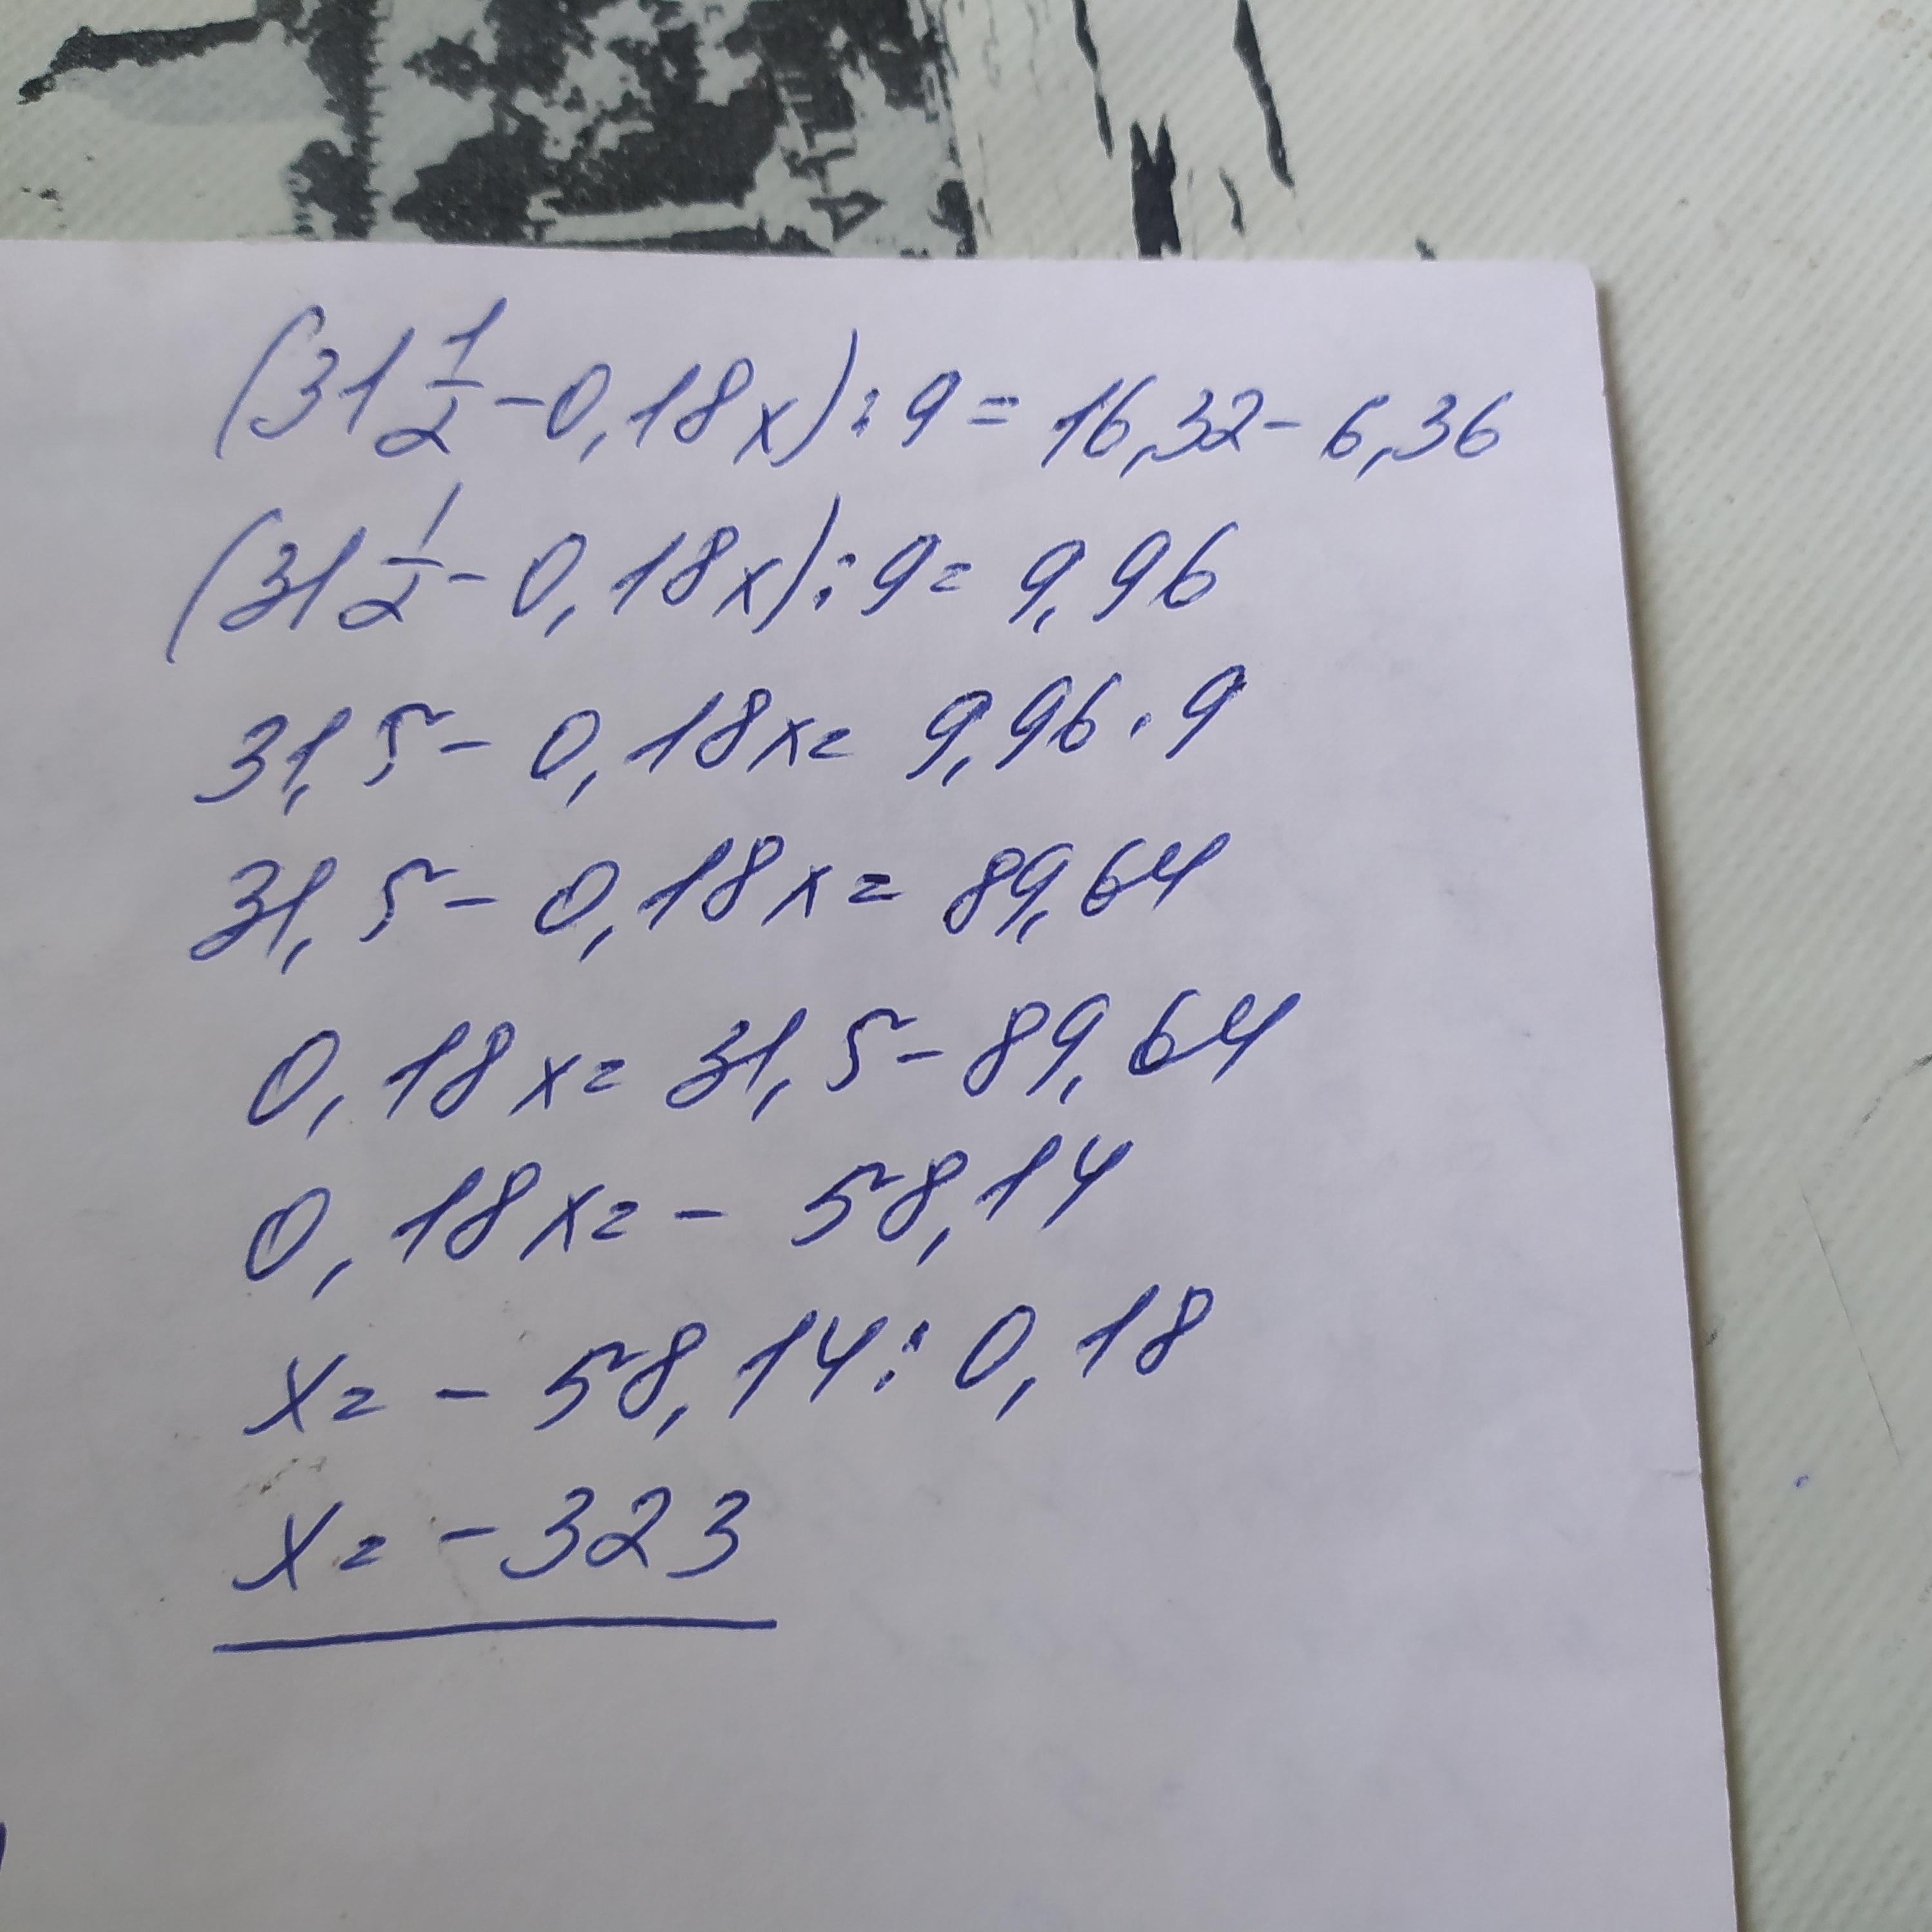 (31 1/2 - 0,18x) : 9 = 16,32 - 6,36
(31 1/2 - 0,18x) : 9 = 9,96
31,5 - 0,18x = 9,96 · 9
31,5 - 0,18x = 89,64
0,18x = 31,5 - 89,64
0,18x = - 58,14
x = - 58,14 : 0,18
x = - 323